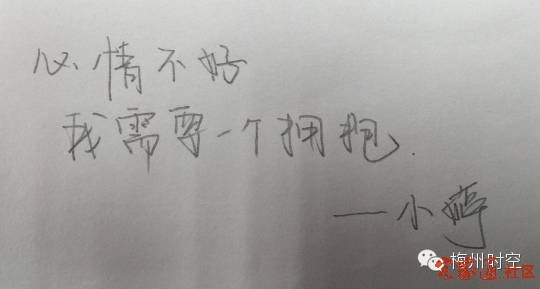 心情不好
我需要一个拥抱.
—小婷
梅州时空
社区